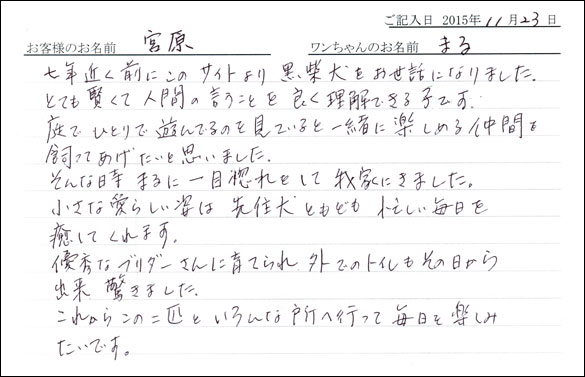 ご記入日 2015年11月23日
お客様のお名前 宮原 ワンちゃんのお名前 まる
七年近く前にこのサイトより黒柴犬をお世話になりました。
とても賢くて人間の言うことを良く理解できる子です。
庭でひとりで遊んでるのを見ていると一緒に楽しめる仲間を
飼ってあげたいと思いました。
そんな時まるに一目惚れをして我家にきました。
小さな愛らしい姿は先住犬ともども忙しい毎日を
癒してくれます。
優秀なブリダーさんに育てられ外でのトイレもその日から
出来驚きました。
これからこの二匹といろんな所へ行って毎日を楽しみ
たいです。